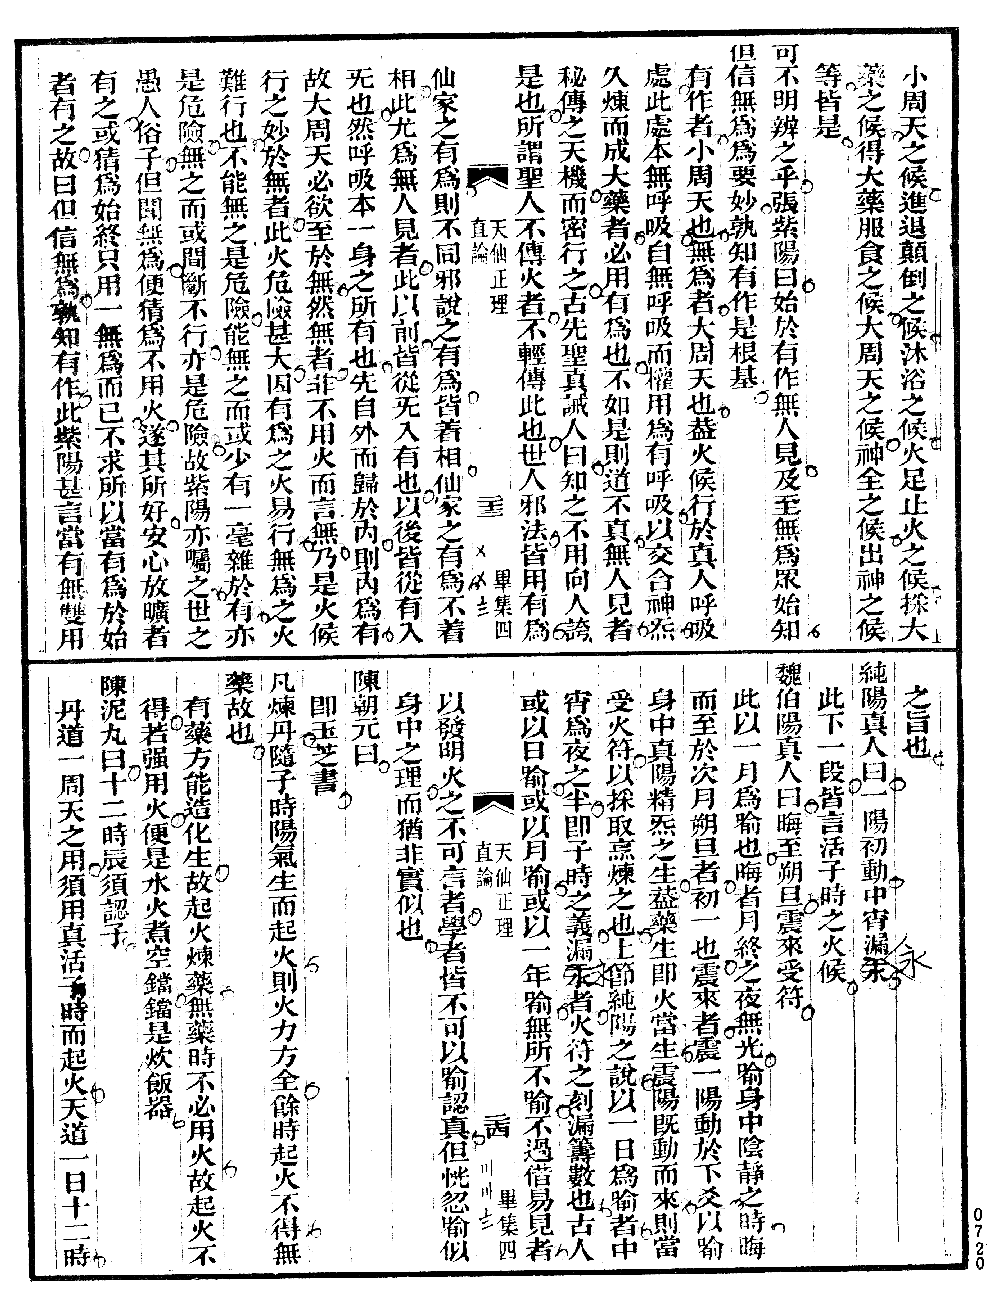 小周天之候進退顛倒之候沐浴之候火足止火之候採大
藥之候得大藥服食之候大周天之候神全之候出神之候
等皆是
可不明辨之乎張紫陽曰始於有作無人見及至無為眾始知
但信無為為要妙孰知有作是根基
有作者小周天也無為者大周天也葢火候行於真人呼吸
處此處本無呼吸自無呼吸而權用為有呼吸以交合神炁
久煉而成大藥者必用有為也不如是則道不真無人見者
秘傳之天機而密行之古先聖真誡人曰知之不用向人誇
是也所謂聖人不傳火者不輕傳此也世人邪法皆用有為
天仙正理
直論
畢集四
仙家之有為則不同邪說之有為皆着相仙家之有為不着
相此尤為無人見者此以前皆從旡入有也以後皆從有入
旡也然呼吸本一身之所有也先自外而歸於內則內為有
故大周天必欲至於無然無者非不用火而言無乃是火候
行之妙於無者此火危險甚大因有為之火易行無為之火
難行也不能無之是危險能無之而或少有一毫雜於有亦
是危險無之而或間斷不行亦是危險故紫陽亦囑之世之
愚人俗子但聞無為便猜為不用火遂其所好安心放曠者
有之或猜為始終只用一無為而已不求所以當有為於始
者有之故曰但信無為孰知有作此紫陽甚言當有無雙用
之旨也
純陽真人曰一陽初動中宵漏汞
永
此下一段皆言活子時之火候
魏伯陽真人曰晦至朔旦震來受符
此以一月為喻也晦者月終之夜無光喻身中陰靜之時晦
而至於次月朔旦者初一也震來者震一陽動於下爻以喻
身中真陽精炁之生葢藥生即火當生震陽既動而來則當
受火符以採取烹煉之也上節純陽之說以一日為喻者中
宵為夜之半即子時之義漏汞者火符之刻漏籌數也古人
或以日喻或以月喻或以一年喻無所不喻不過借易見者
天仙正理
直論
畢集四
以發明火之不可言者學者皆不可以喻認真但恍忽喻似
身中之理而猶非實似也
陳朝元曰
即玉芝書
凡煉丹隨子時陽氣生而起火則火力方全餘時起火不得無
藥故也
有藥方能造化生故起火煉藥無藥時不必用火故起火不
得若强用火便是水火煮空鐺鐺是炊飯器
陳泥丸曰十二時辰須認子
丹道一周天之用須用真活子時而起火天道一日十二時
0720